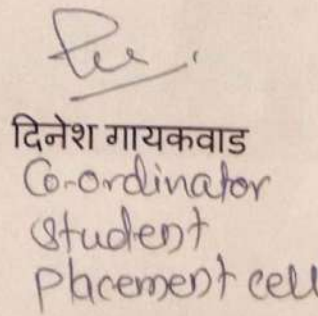 दिनेश गायकवाड
Co-ordinator
Student
Placement cell